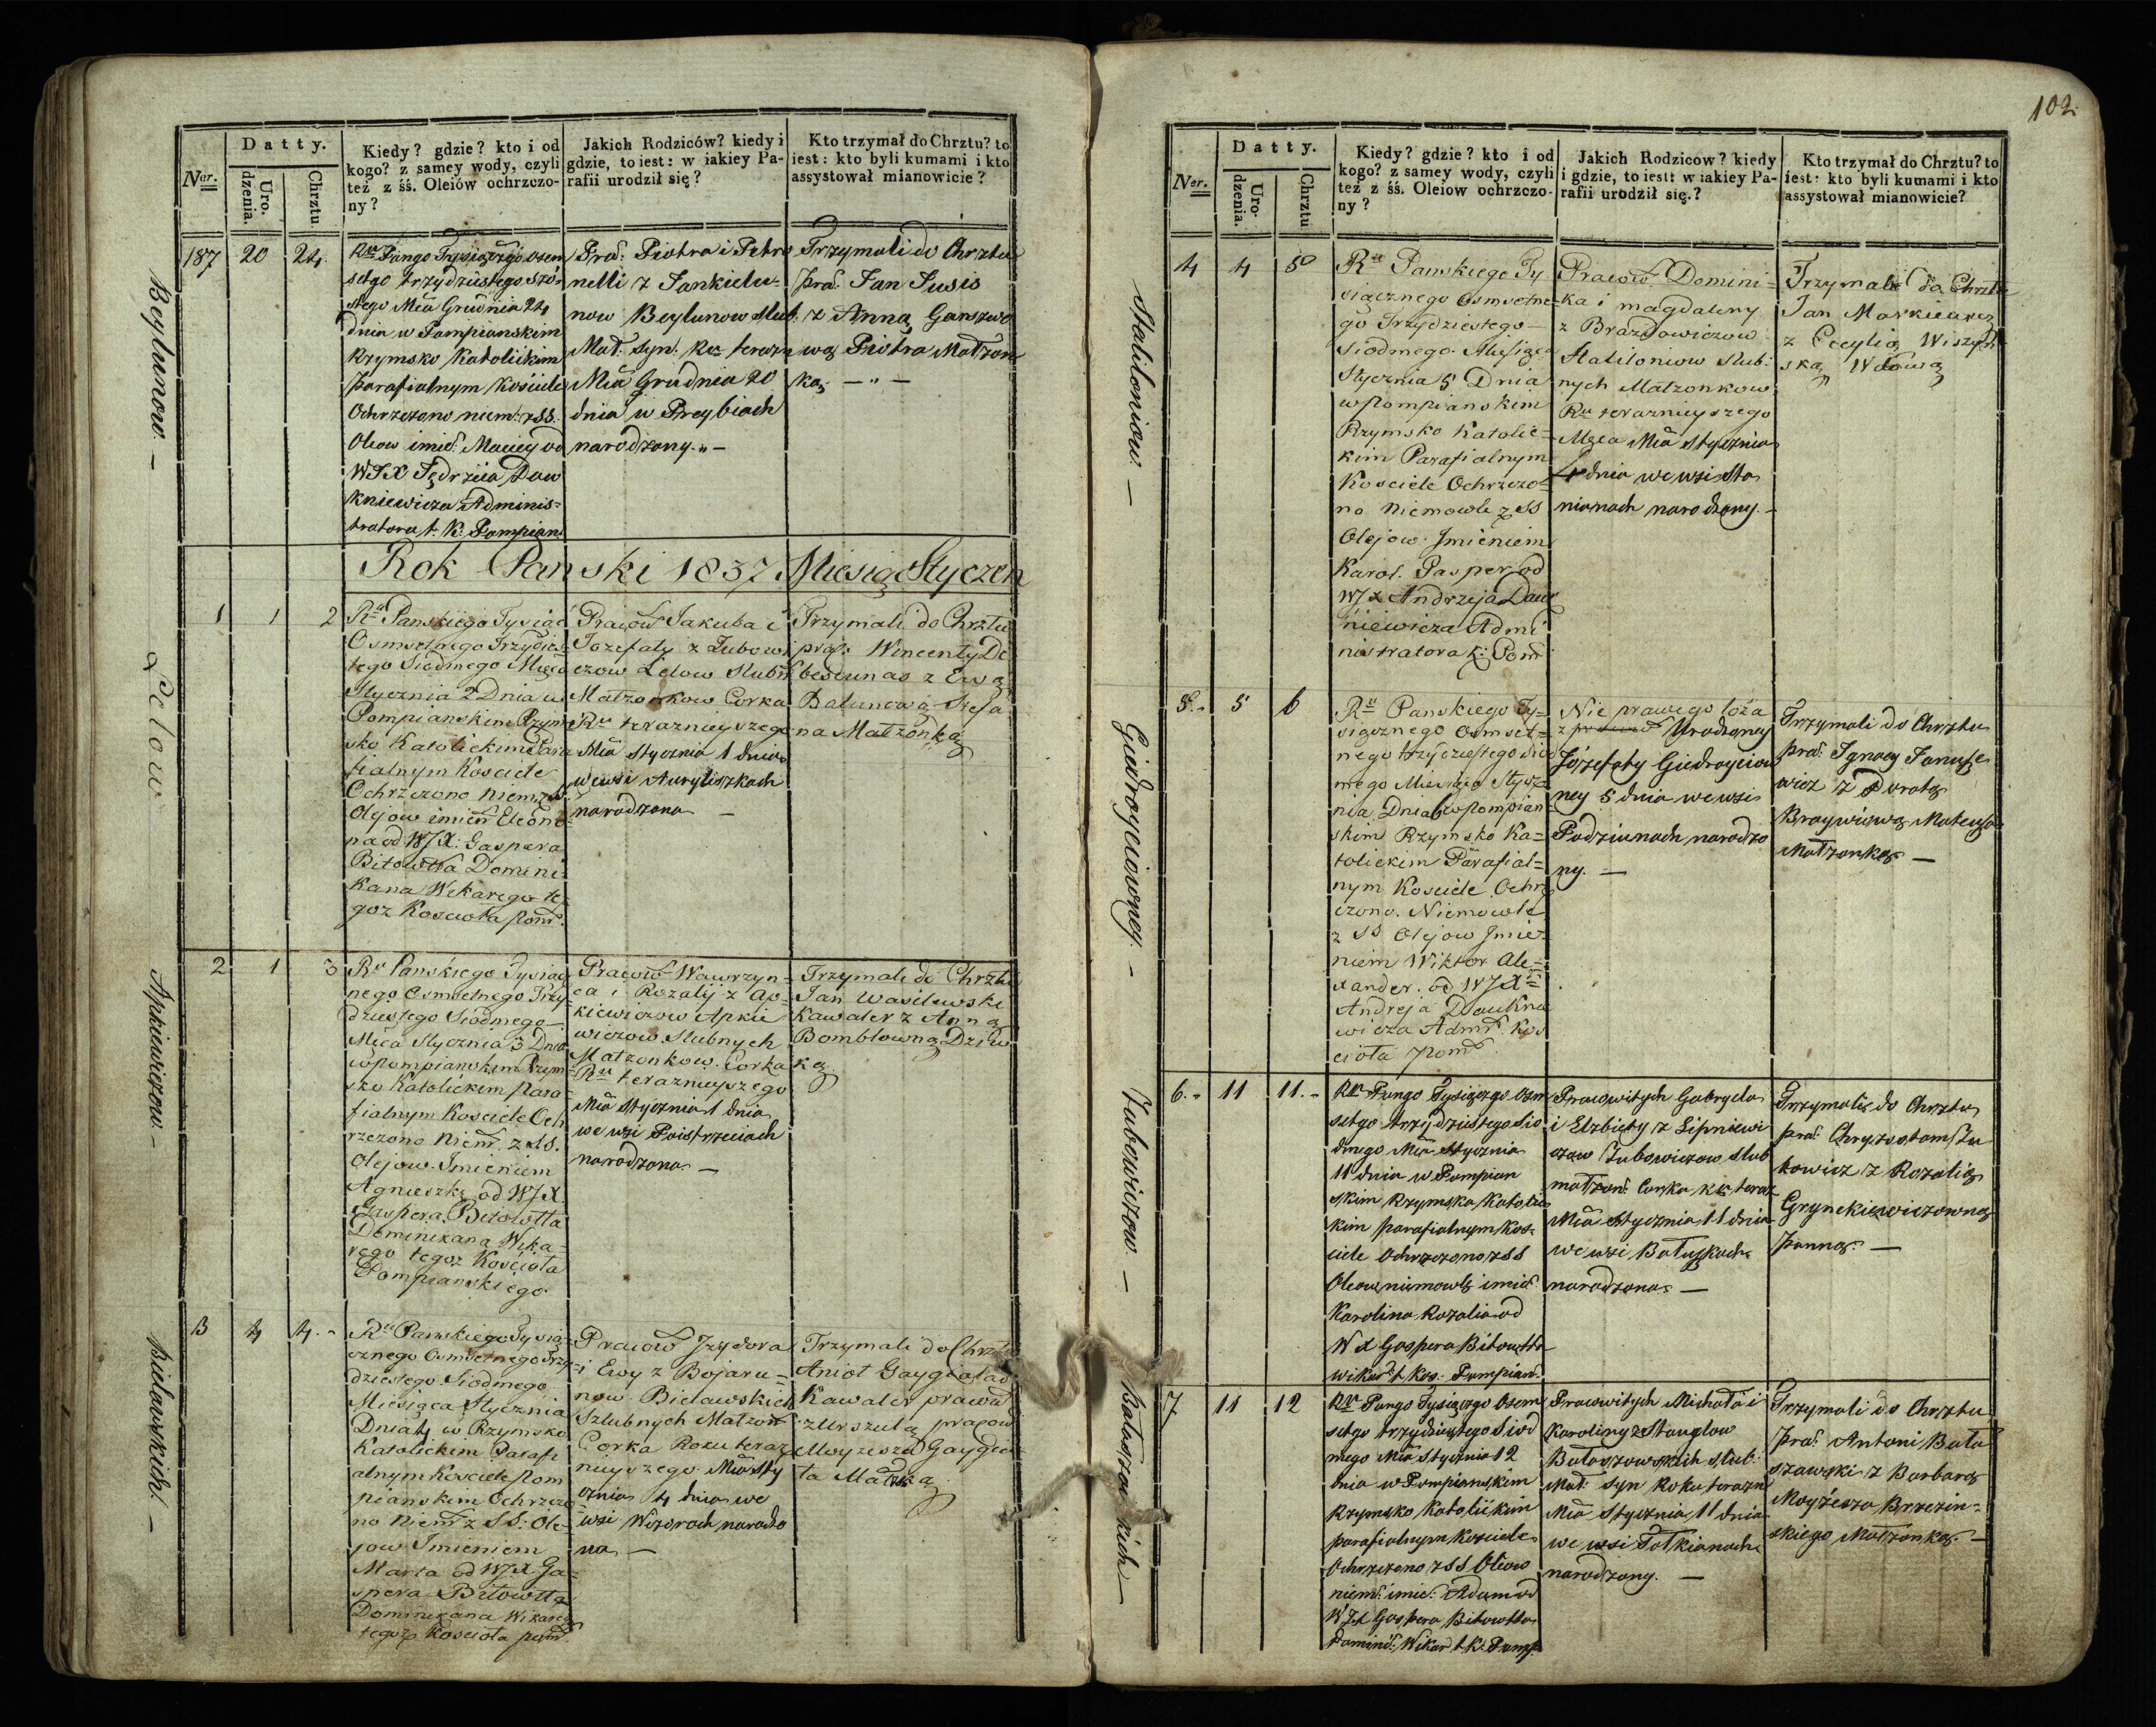 102.
Datty.
Ner.
Uro-
dzenia.
Chrztu
Kiedy? gdzie? kto i od
kogo? z samey wody, czyli
też z śś. Oleiów ochrzczo-
ny?
Jakich Rodziców? kiedy i
gdzie, to iest: w iakiey Pa-
rafii urodził się?
Kto trzymał do Chrztu? to
iest: kto byli kumami i kto
assystował mianowicie?
Beylunow. -
187 20 24.
Ru Pango Tysiączgo osm
setgo trzydziestego szó-
stego Mca Grudnia 24
dnia w Pompianskim
Rzymsko Katolickim
Parafialnym Kościele
Ochrzczono niem: z SS.
Oleow imie: Maciey od
WJX Jędrzeia Daw
kniewicza Adminis-
tratora t. K. Pompian
Prac: Piotra i Petro
nelli z Jankielu-
now Beylunow slub.
Mał: syn. Ru terazn
Mca Grudnia 20
dnia w Preybiach
narodzony. -
Trzymali do Chrztu
Prac: Jan Susis
z Anną Ganszwo
wą Piotra Małżon
ką. - " -
Rok Panski 1837 Miesiąc Styczeń
Lelow
1 1 2
Ru Panskiego Tysiąc
Osmsetnego Trzydzies
tego Siodmego Mięca
Stycznia 2 Dnia w
Pompianskim Rzym
sko Katolickim Para
fialnym Kosciele
Ochrzczono Niem z SS
Olejow imien Eleono
na od WJX. Gaspera
Bitowtta Domini
kana Wikarego te
goż Koscioła Pom.
Pracow Jakuba i
Jozefaty z Zubowi
czow Lelow Slubn
Małzonkow Corka
Ru terazniejszego
Mca Stycznia 1 dnia
we wsi Auryliszkach
narodzona -
Trzymali do Chrztu
prac: Wincenty De
besiunas z Ewą
Balunową Stefa
na Małżonką
Apkiewiczow. -
2 1 3
Ru Panskiego Tysiącz
nego Osmsetnego Trzy
dziestego Siodmego
Mca Stycznia 3 Dnia
w Pompianskim Rzym
sko Katolickim Para
fialnym Kosciele Och
rzczono Niem. z SS.
Olejow Imieniem
Agnieszkę od WJX.
Gaspera Bitowtta
Dominikana Wika-
rego tegoż Kościoła
Pompianskiego
Pracow Wawrzyn-
ca i Rozalij z Ap-
kiewiczow Apkie
wiczow Slubnych
Małzonkow. Corka
Ru terazniejszego
Mca Stycznia 1 dnia
we wsi Poistrzeciach
narodzona -
Trzymali do Chrztu
Jan Wasilewski
Kawaler z Anną
Bomblowną Dziew
ką
Bielawskich. -
3 4 4. -
Ru Panskiego Tysią
cznego Osmsetnego Trzy-
dziestego Siodmego
Miesiąca Stycznia
Dnia 4 w Rzymsko
Katolickim Parafi
alnym Kosciele Pom
pianskim Ochrzczo
no Niem z SS. Ole-
jow Imieniem
Marta od WJX Ga-
spera Bitowtta
Dominikana Wikarego
tegoż Kosciota pom.
Pracow Jzydora
i Ewy z Bojaru-
now Bielawskich
Szlubnych Małzon
Corka Roku teraz
nieyszego Mca Sty
cznia 4 dnia we
wsi Wizorach narodzo
na -
Trzymali do Chrztu
Anioł Gaygałas
Kawaler pracow
z Urszulą pracow
Moyżesza Gayga
ła Małżką
Datty.
Ner.
Uro-
dzenia.
Chrztu
Kiedy? gdzie? kto i od
kogo? z samey wody, czyli
też z śś. Oleiow ochrzczo-
ny?
Jakich Rodzicow? kiedy
i gdzie, to iest: w iakiey Pa-
rafii urodził się.?
Kto trzymał do Chrztu? to
iest: kto byli kumami i kto
assystował mianowicie?
Staliloniow. -
4 4 5
Ru Panskiego Ty
siącznego Osmsetne
go Trzydziestego-
Siodmego. Miesiąca
Stycznia 5 Dnia
w Pompianskim
Rzymsko Katolic-
kim Parafialnym
Kosciele Ochrzczo-
no Niemowle z SS
Olejow. Jmieniem
Karol. Pasper od
WJX Andrzeja Daw
niewicza Admi
nistratora k: Pom
Pracow. Domini-
ka i magdaleny
z Brazdowiczow
Staliloniow Slub-
nych Małzonkow
Ru terazniejszego
Mca Stycznia
4 dnia we wsi Sta
nianach narodzony. -
Trzymali do Chrztu
Jan Markiewicz
z Cecylią Wiszyń
ską Wdową
Giedroyciowney. -
5. - 5 6
Ru Panskiego Ty-
siącznego Osmset-
nego trzydziestego Siod
mego Miesiąca Stycz
nia Dnia 6 w Pompian
skim Rzymsko Ka-
tolickim Parafial-
nym Kosciele Ochrz
czono. Niemowle
z SS Olejow Jmie-
niem Wiktor Ale-
xander. od WJX
Andreja Dawknie
wicza Adm. Kos
cioła Pom
Nie prawego łoża
z Urodzoney
Józefaty Giedroyciow
ney 5 dnia we wsi
Padziunach narodzo
ny. -
Trzymali do Chrztu
prac: Ignacy Januszke
wicz z Dorotą
Braywiową Mateusza
Małżonką -
Zubowiczow. -
6. - 11 11. -
Ru Pango Tysiączgo osm
setgo trzydziestego Sio
dmego Mca Stycznia
11 dnia w Pompian
skim Rzymsko Katolic
kim parafialnym Kos-
ciele Ochrzczono z SS
Oleow niemowle imie:
Karolina Rozalia od
WX Gaspera Bitowtta
wikar t Kos: Pompian.
Pracowitych Gabryela
i Elzbiety z Lipniewi
czow Zubowiczow slub
małżon: Corka Ru teraz
Mca Stycznia 11 dnia
we wsi Bałuszkach
narodzona -
Trzymali do Chrztu
prac: Chryzostom Zu
kowicz z Rozalią
Grynckiewiczowną
Panną. -
Bałaszewskich -
7 11 12
Ru Pango Tysiączgo Osem
setgo trzydziestego Siod
mego Mca Stycznia 12
dnia w Pompianskim
Rzymsko Katolickim
parafialnym Kosciele
Ochrzczono z SS Oleow
niem: imie: Adam od
WJX Gaspera Bitowtta
Dominik: Wikar t K: Pomp.
Pracowitych Michała i
Karoliny z Stanglow
Bałaszowskich slub:
Mał: syn Roku terazn
Mca Stycznia 11 dnia
we wsi Tolkianach
narodzony. -
Trzymali do Chrztu
Prac: Antoni Bała
szawski z Barbarą
Moyżesza Brzezin-
skiego Małżonką. -